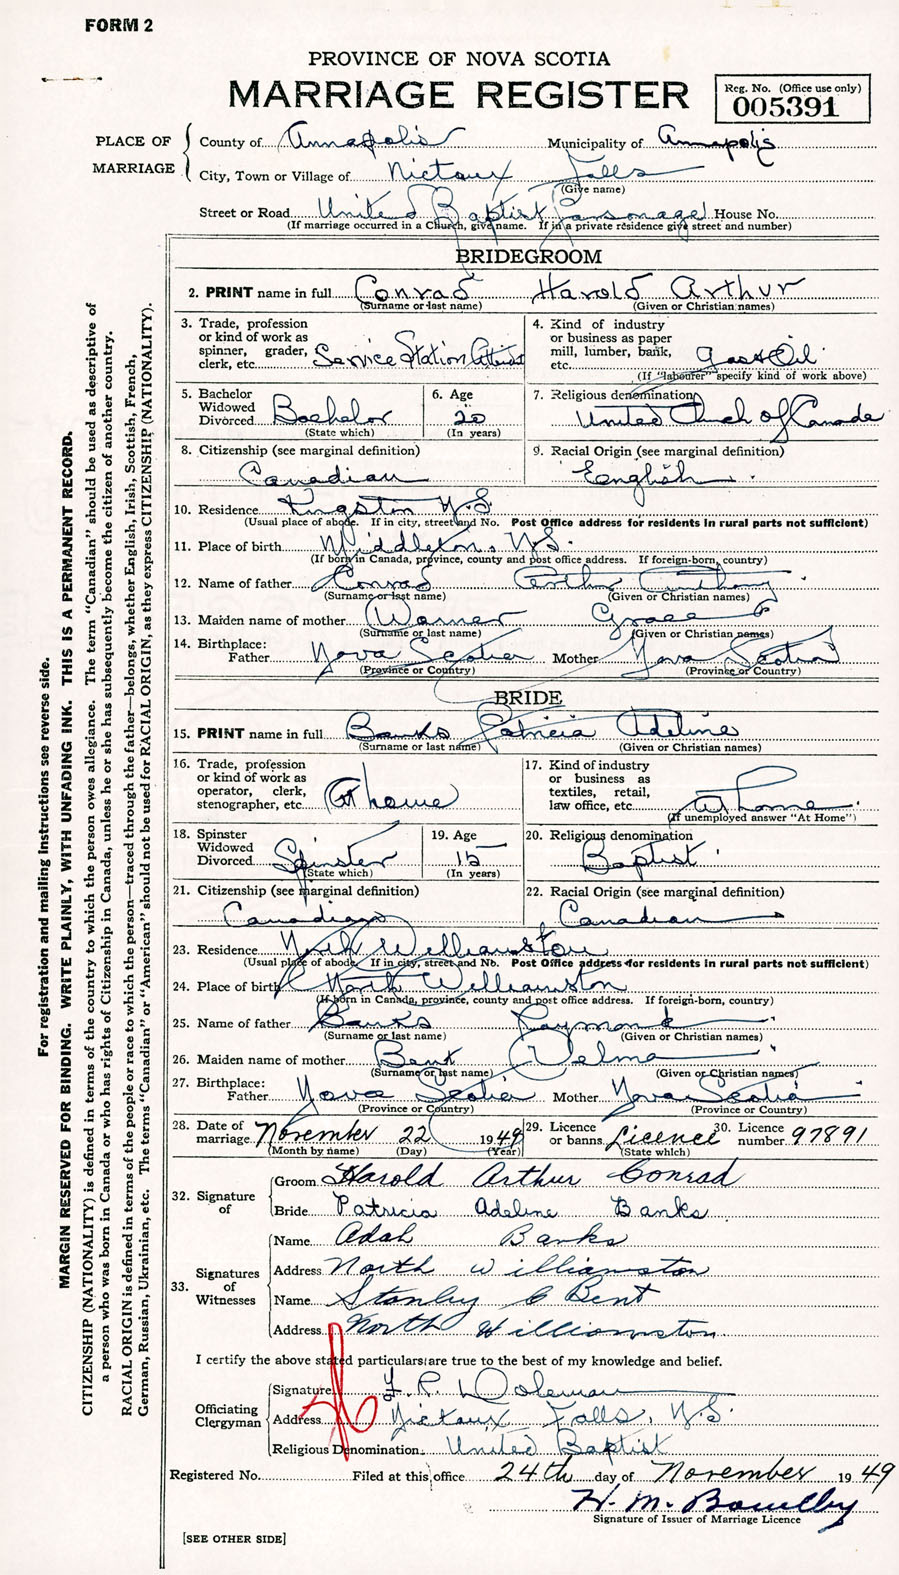 FORM 2
PROVINCE OF NOVA SCOTIA
MARRIAGE REGISTER
Reg. No. (Office use only)
005391
PLACE OF MARRIAGE
County of Annapolis Municipality of Annapolis
City, Town or Village of Nictaux Falls
(Give name)
Street or Road United Baptist Parsonage House No.
(If marriage occurred in a Church, give name. If in a private residence give street and number)
BRIDEGROOM
2. PRINT name in full Conrad Harold Arthur
(Surname or last name) (Given or Christian names)
3. Trade, profession or kind of work as spinner, grader, clerk, etc. Service Station
4. Kind of industry or business as paper mill, lumber, bank, etc. Gas & Oil
(If "labourer" specify kind of work above)
5. Bachelor Widowed Divorced Bachelor
(State which)
6. Age 20
(In years)
7. Religious denomination
United Church of Canada
8. Citizenship (see marginal definition)
Canadian
9. Racial Origin (see marginal definition)
English
10. Residence Kingston N.S.
(Usual place of abode. If in city, street and No. Post Office address for residents in rural parts not sufficient)
11. Place of birth Middleton, N.S.
(If born in Canada, province, county and post office address. If foreign-born, country)
12. Name of father Conrad Arthur Anthony
(Surname or last name) (Given or Christian names)
13. Maiden name of mother Warner Grace
(Surname or last name) (Given or Christian names)
14. Birthplace:
Father Nova Scotia Mother Nova Scotia
(Province or Country) (Province or Country)
BRIDE
15. PRINT name in full Banks Patricia Adeline
(Surname or last name) (Given or Christian names)
16. Trade, profession or kind of work as operator, clerk, stenographer, etc. At home
17. Kind of industry or business as textiles, retail, law office, etc. At Home
(If unemployed answer "At Home")
18. Spinster Widowed Divorced Spinster
(State which)
19. Age 15
(In years)
20. Religious denomination
Baptist
21. Citizenship (see marginal definition)
Canadian
22. Racial Origin (see marginal definition)
Canadian
23. Residence North Williamston
(Usual place of abode. If in city, street and Nb. Post Office address for residents in rural parts not sufficient)
24. Place of birth North Williamston
(If born in Canada, province, county and post office address. If foreign-born, country)
25. Name of father Banks Raymond
(Surname or last name) (Given or Christian names)
26. Maiden name of mother Bent Velma
(Surname or last name) (Given or Christian names)
27. Birthplace:
Father Nova Scotia Mother Nova Scotia
(Province or Country) (Province or Country)
28. Date of marriage November 22 1949
(Month by name) (Day) (Year)
29. Licence or banns Licence
(State which)
30. Licence number 97891
32. Signature of
Groom Harold Arthur Conrad
Bride Patricia Adeline Banks
33. Signatures of Witnesses
Name Adah Banks
Address North Williamston
Name Stanley C Bent
Address North Williamston
I certify the above stated particulars are true to the best of my knowledge and belief.
Officiating Clergyman
Signature F. R. Woleman
Address Nictaux Falls, N.S.
Religious Denomination United Baptist
Registered No. Filed at this office 24th day of November 1949
H. M.
Signature of Issuer of Marriage Licence
[SEE OTHER SIDE]
For registration and mailing instructions see reverse side.
MARGIN RESERVED FOR BINDING. WRITE PLAINLY, WITH UNFADING INK. THIS IS A PERMANENT RECORD.
CITIZENSHIP (NATIONALITY) is defined in terms of the country to which the person owes allegiance. The term "Canadian" should be used as descriptive of
a person who was born in Canada or who has rights of Citizenship in Canada, unless he or she has subsequently become the citizen of another country.
RACIAL ORIGIN is defined in terms of the people or race to which the person—traced through the father—belongs, whether English, Irish, Scottish, French,
German, Russian, Ukrainian, etc. The terms "Canadian" or "American" should not be used for RACIAL ORIGIN, as they express CITIZENSHIP (NATIONALITY).